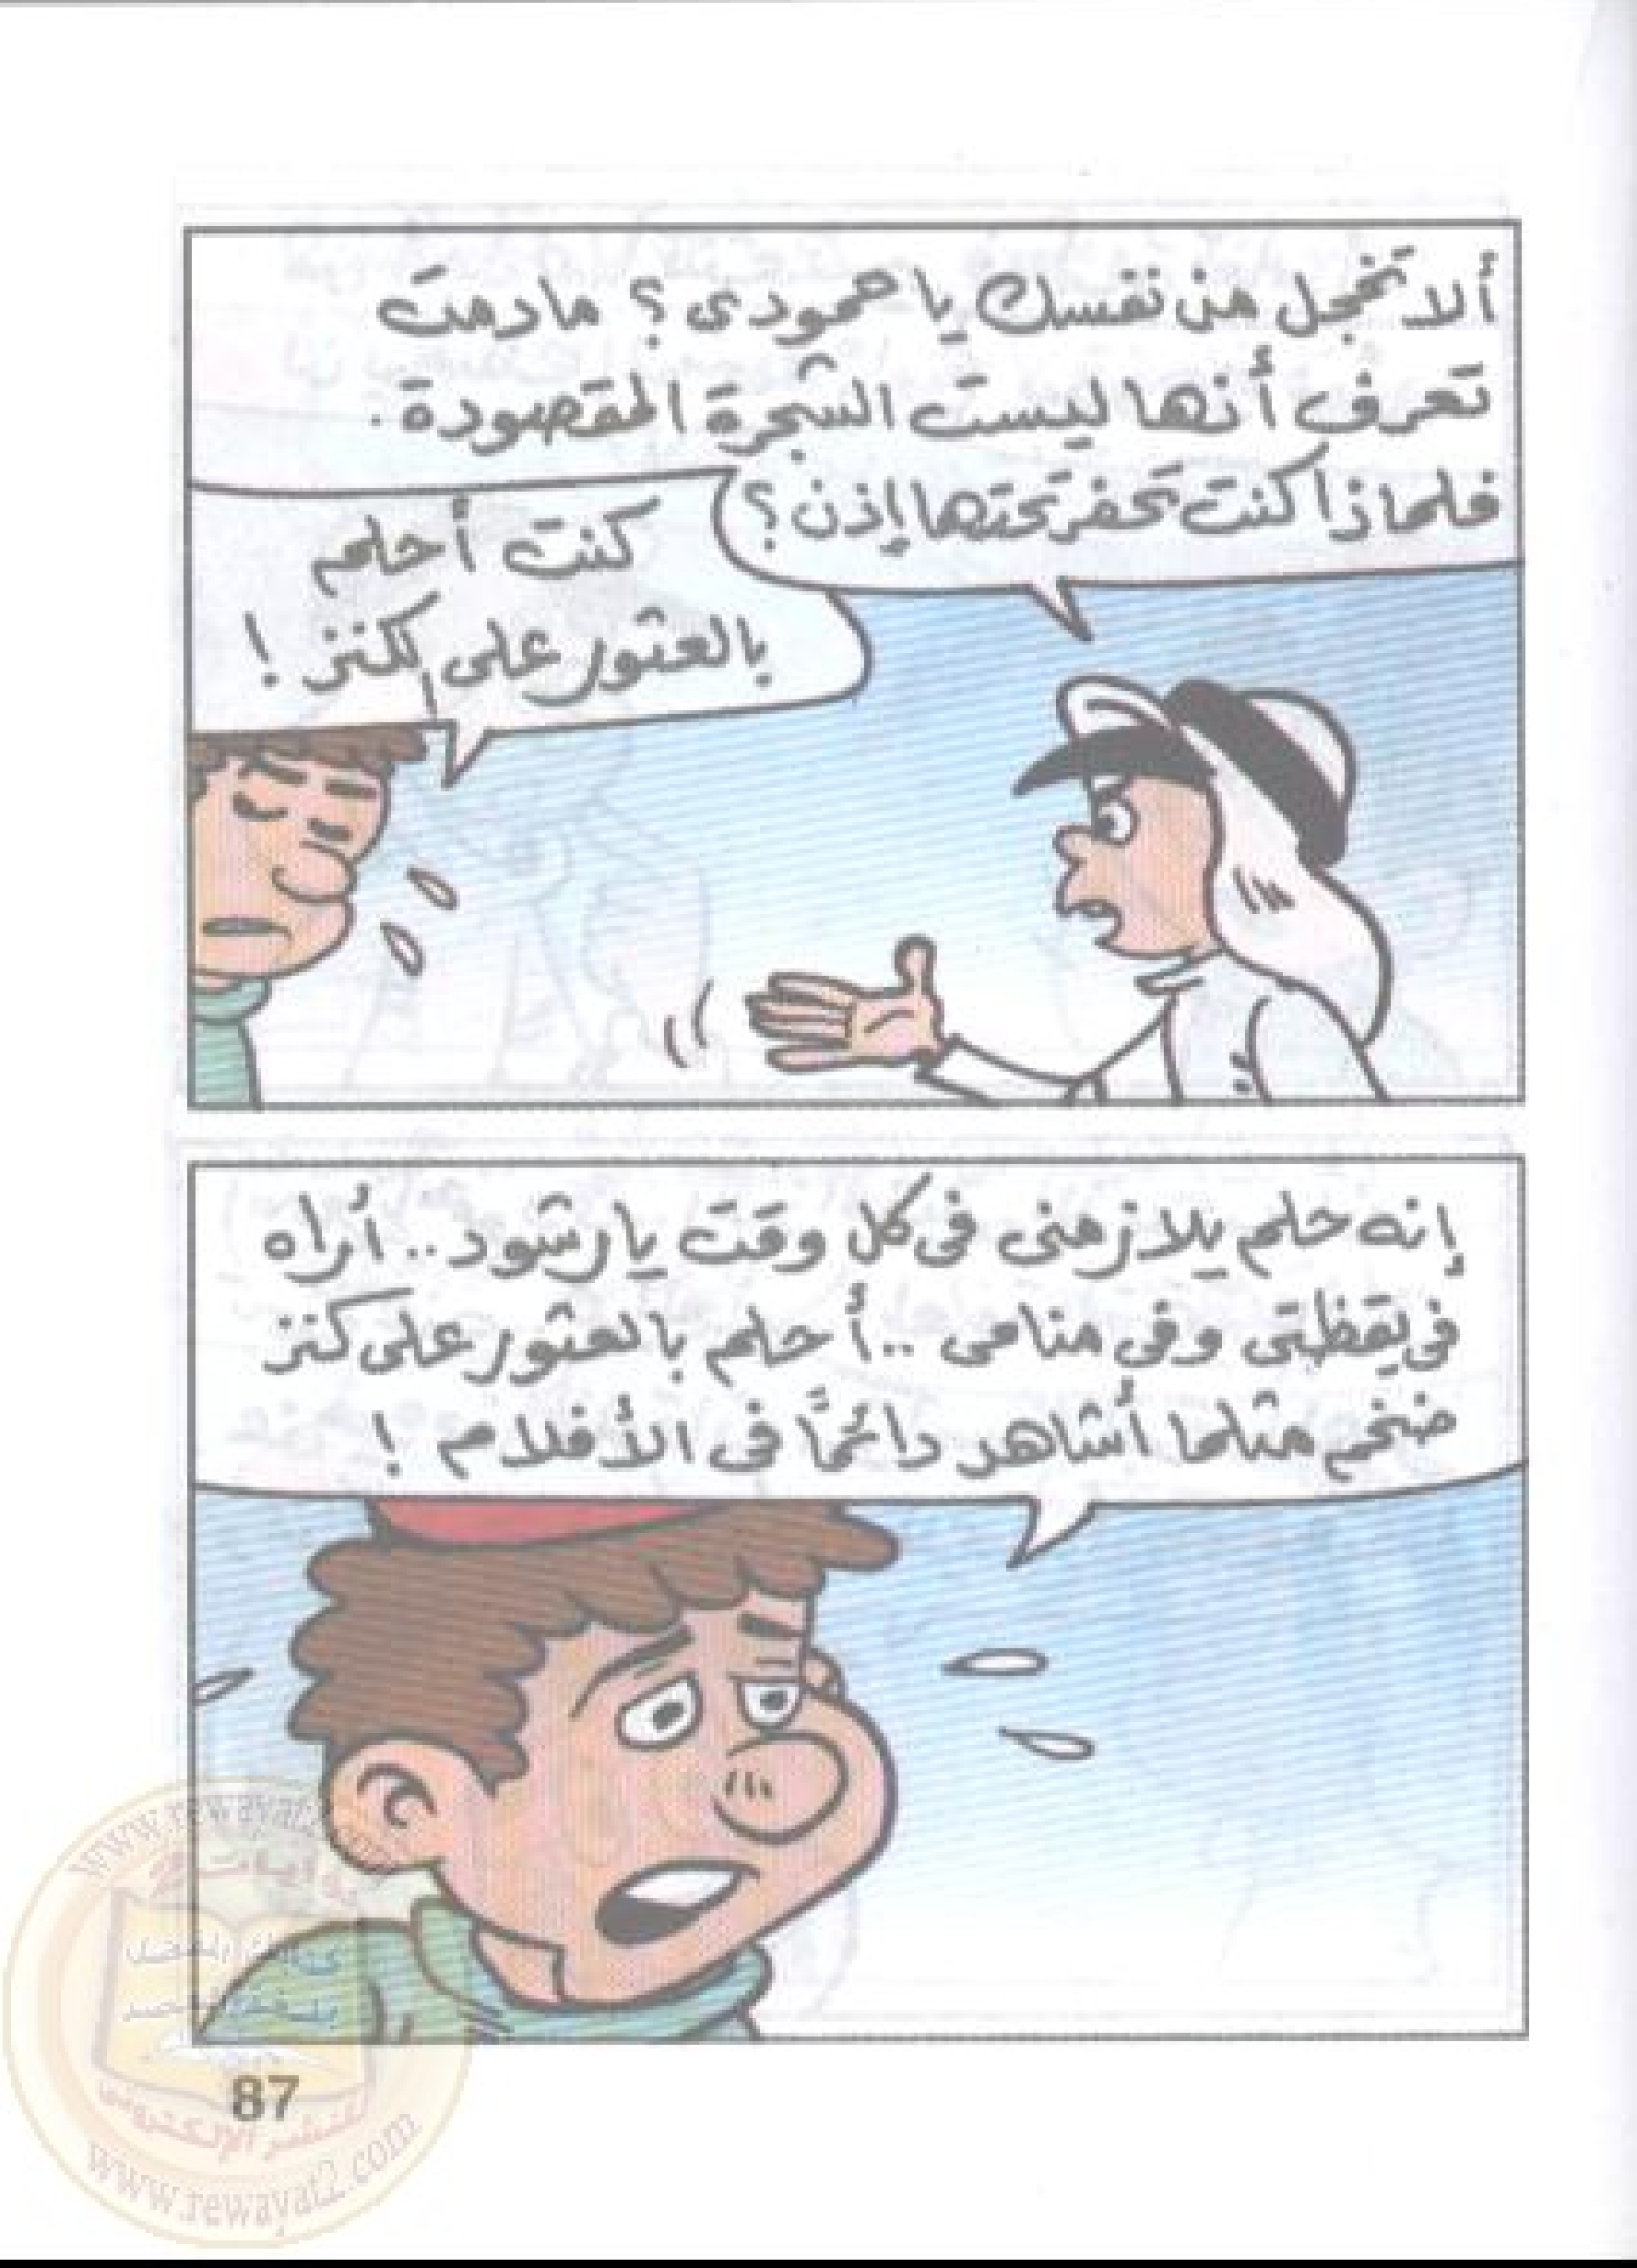 ألا تخجل من نفسك يا حمودى ؟ مادمت
تعرف أنها ليست الشجرة المقصودة .
فلماذا كنت تحفر تحتها إذن ؟
كنت أحلم
بالعثور على الكنز !
إنه حلم يلازمنى فى كل وقت يا رشود .. أراه
فى يقظتى وفى منامى .. أحلم بالعثور على كنز
ضخم مثلما أشاهد دائمًا فى الأفلام !
www.rewayat2.com
روايات 2
للنشر الإلكترونى
www.rewayat2.com
87